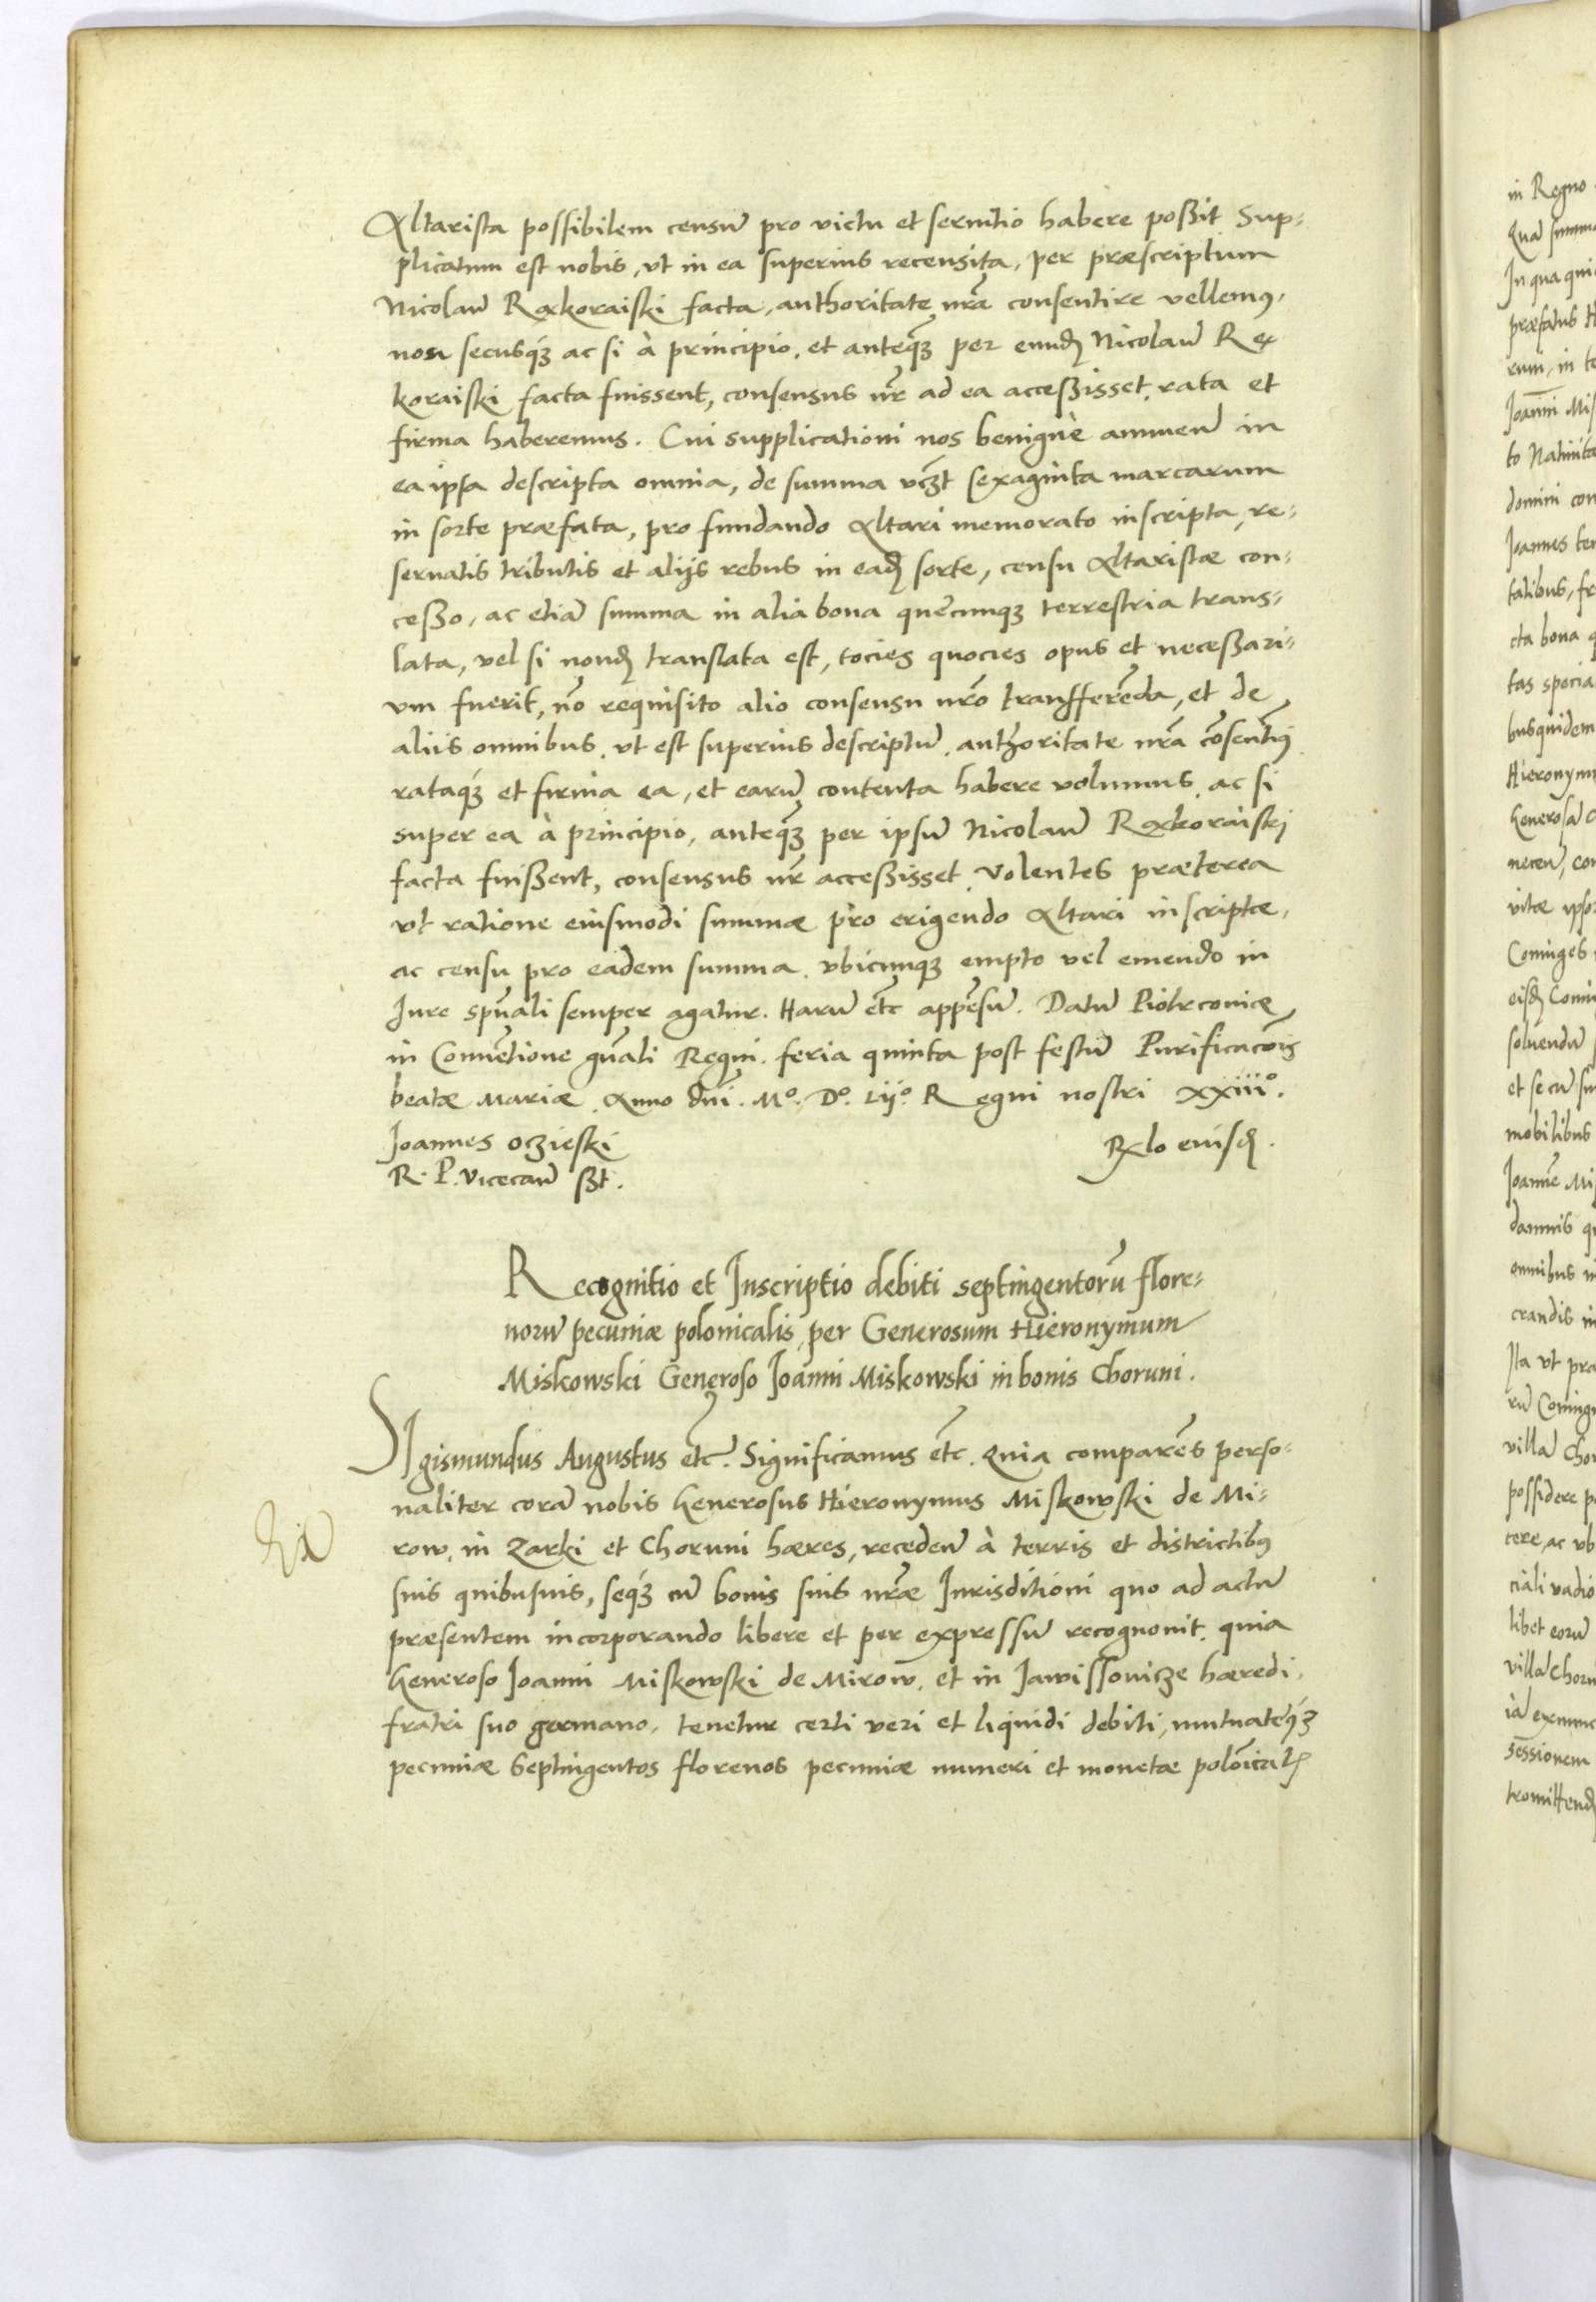 Altarista possibilem censũ pro victu et seruitio habere possit Sup-
plicatum est nobis, vt in ea superius recensita, per præscriptum
Nicolaũ Rexkoraiski facta, authoritate nr̃a consentire vellemus,
non secusq́ꝫ ac si à principio, et anteq̃ꝫ per eundẽ Nicolaũ Rex
koraiski facta fuissent, consensus nr̃ ad ea accessisset, rata et
firma haberemus. Cui supplicationi nos benignè annueñ in
ea ipsa descripta omnia, de summa vcꝫt sexaginta marcarum
in sorte præfata, pro fundando Altari memorato inscripta, re-
seruatis tributis et alijs rebus in eadẽ sorte, censu Altaristæ con-
cesso, ac etiã summa in alia bona quæcunqꝫ terrestria trans-
lata, vel si nondũ translata est, tocies quocies opus et necessari-
um fuerit, nõ requisito alio consensu nr̃o transferẽda, et de
aliis omnibus, vt est superius descriptũ, authoritate nr̃a cõsentimꝰ
rataq́ꝫ et firma ea, et earũ contenta habere volumus, ac si
super ea à principio, anteq̃ꝫ per ipsũ Nicolaũ Rexkoraiski
facta fuissent, consensus nr̃ accessisset. Volentes præterea
vt ratione eiusmodi summæ pro erigendo Altari inscriptæ,
ac censu pro eadem summa, vbicunqꝫ empto vel emendo in
Jure spũali semper agatur. Harũ etc̃ appẽsũ. Datũ Piotrconiæ
in Conuẽtione gñali Regni. feria quinta post festũ Purificacõis
beatæ Mariæ. Anno dñi. Mº. Dº. Lijº. Regni nostri XXiiiº.
Joannes Oczieski Rx̃lo eiusdẽ.
R. P. Vicecañ sꝫt.
Recognitio et Inscriptio debiti septingentorũ flore-
norũ pecuniæ polonicalis, per Generosum Hieronymum
Miskowski Generoso Joanni Miskowski in bonis Choruni.
Sigismundus Augustus etc̃. Significamus etc̃. Quia comparẽs perso-
naliter corã nobis Generosus Hieronymus Miskowski de Mi-
row, in Zarki et Choruni hæres, recedeñ à terris et districtibꝰ
suis quibusuis, seq́ꝫ cũ bonis suis nr̃æ Jurisditioni quo ad actũ
præsentem incorporando libere et per expressũ recognouit, quia
Generoso Joanni Miskowski de Mirow, et in Jawissouicze hæredi,
fratri suo germano, tenetur certi veri et liquidi debiti, mutuatæq́ꝫ
pecuniæ Septingentos florenos pecuniæ numeri et monetæ polõicał
in Regno
Quã summã
præfatus H
Joanni Mis
to Natiuita
domini con
Joannes ten
talibus, fr
cta bona q
tas specia
busquidem
Hieronymu
Generosã
vitæ ipso
Cominges
soluendũ
et se cũ su
mobilibus
Joannẽ Mi
damnis q
omnibus in
crandis in
Ita vt præ
rũ Coming
villã Chor
possidere p
cere, ac vb
ciali vadio
libet eorũ
villã Chorũ
iã exnunc
sessionem
tromittend